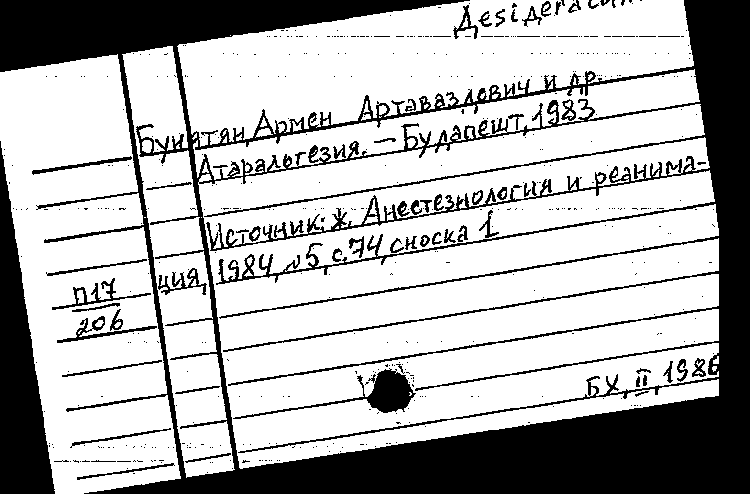 Дesideratum
Бунятян, Армен Артаваздович и др.
Атаралгезия. — Будапешт, 1983
Источник: ж. Анестезиология и реанима-
ция, 1984, №5, с.74, сноска 1
П17
206
БХ, II, 1986